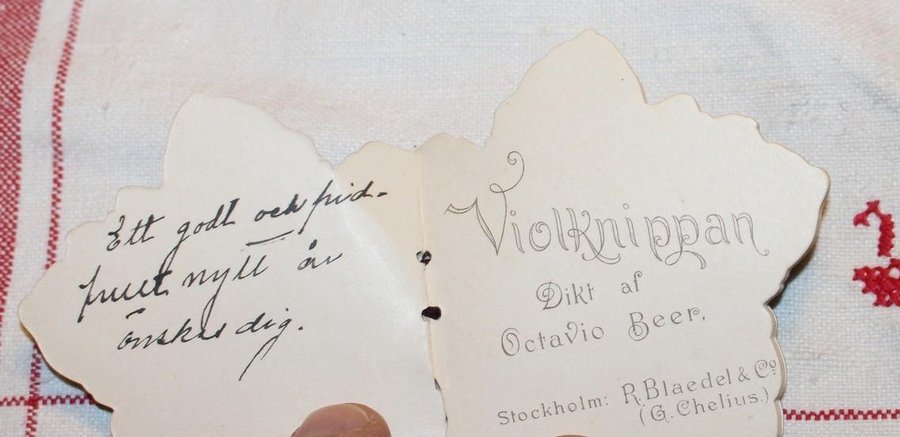 Ett godt och frid-
fullt nytt år
önskas dig.
Violknippan
Dikt af
Octavio Beer.
Stockholm: R. Blaedel & Co.
(G. Chelius.)